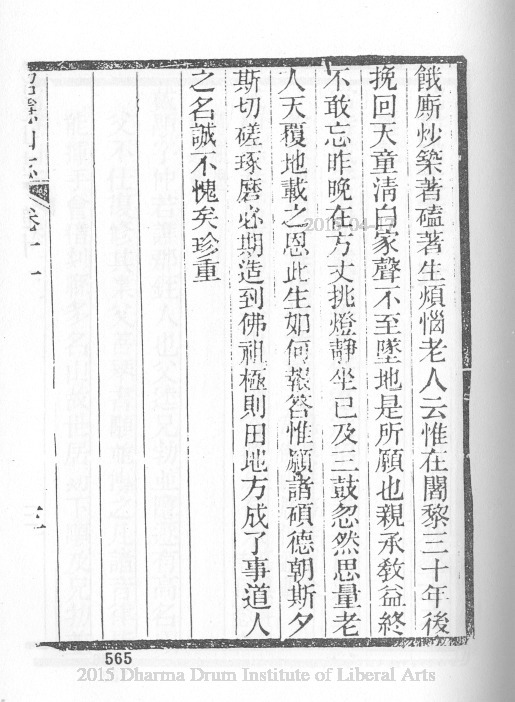 餓廝炒築著磕著生煩惱老人云惟在闍黎三十年後
挽回天童清白家聲不至墜地是所願也親承敎益終
不敢忘昨晚在方丈挑燈靜坐已及三鼓忽然思量老
人天覆地載之恩此生如何報答惟願諸碩德朝斯夕
斯切磋琢磨必期造到佛祖極則田地方成了事道人
之名誠不愧矣珍重
卷十一
三
565
2015 Dharma Drum Institute of Liberal Arts